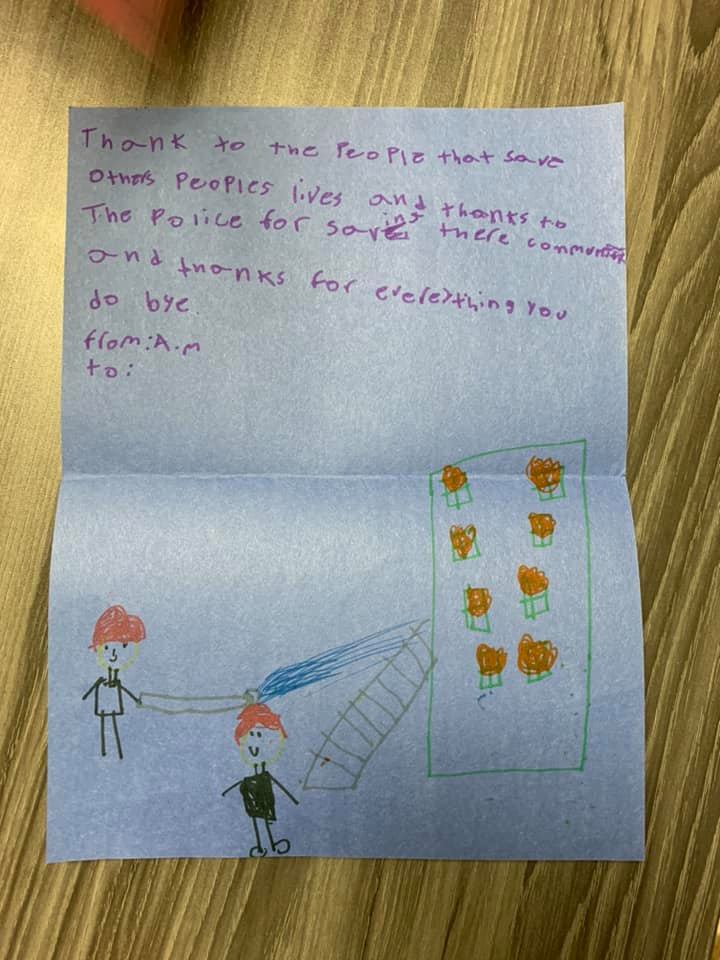 Thank to the PeoPle that save
others PeoPles lives and thanks to
The Police for saveing there communitie
and thanks for everething you
do bye.
from: A.m
to: